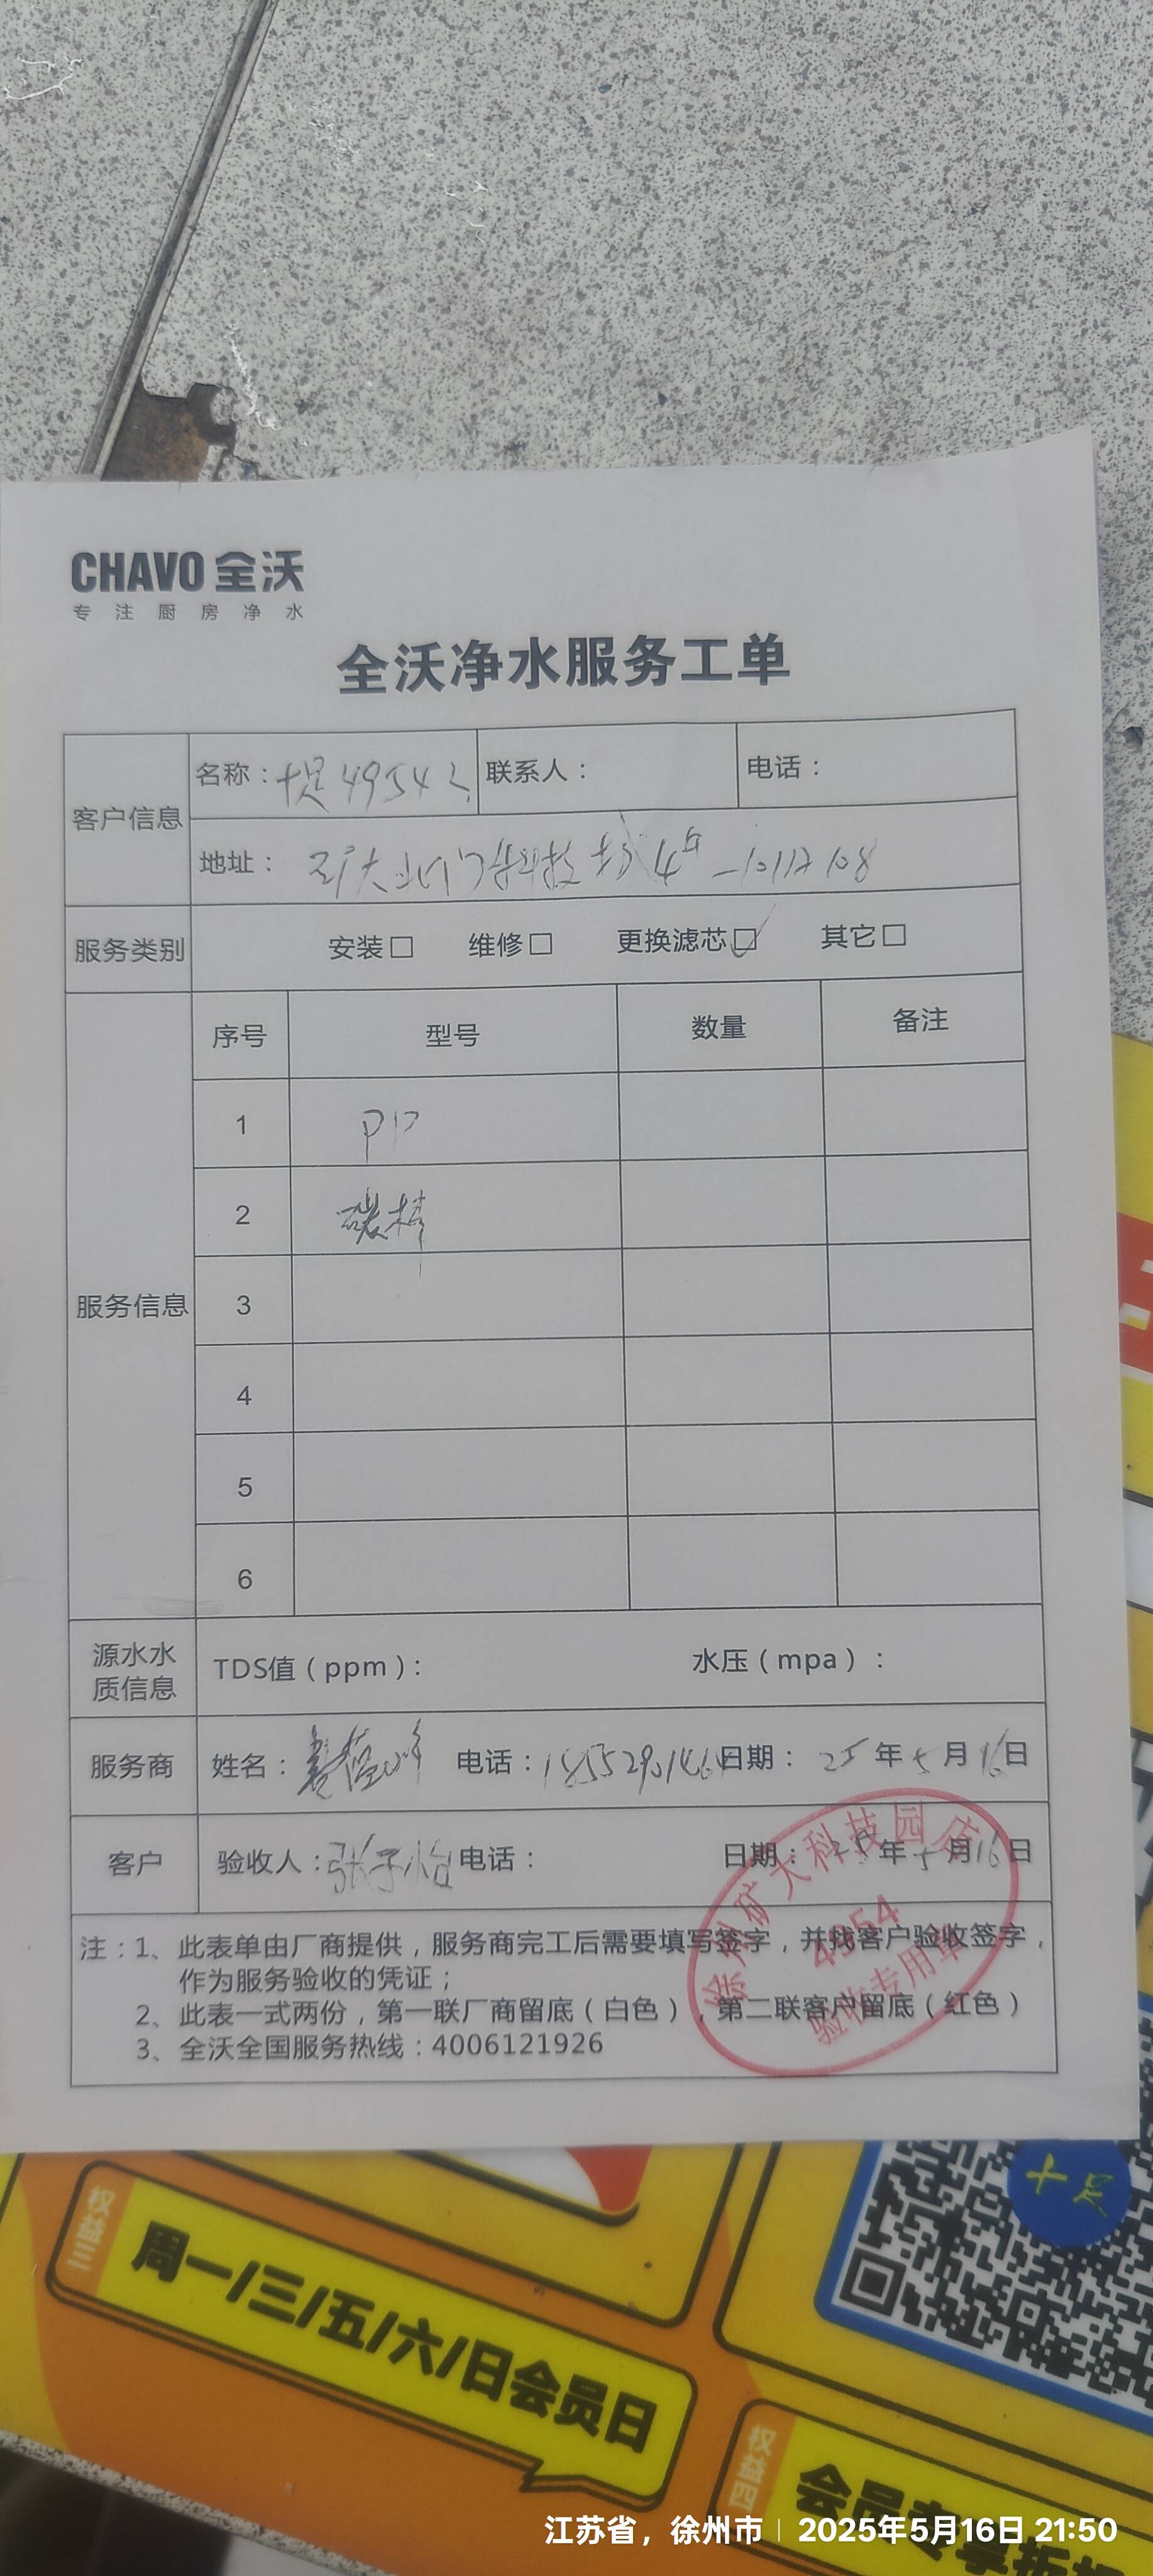 CHAVO 全沃
专注厨房净水
全沃净水服务工单
客户信息
名称：十足4954 联系人： 电话：
地址：矿大北门科技 4 108
服务类别 安装□ 维修□ 更换滤芯☑ 其它□
服务信息
序号 型号 数量 备注
1 PP
2 碳棒
3
4
5
6
源水水质信息 TDS值（ppm）： 水压（mpa）：
服务商 姓名： 电话： 日期：25年5月16日
客户 验收人：张子怡 电话： 日期：25年5月16日
徐州矿大科技园店
4954
验收专用章
注：1、此表单由厂商提供，服务商完工后需要填写签字，并找客户验收签字，
作为服务验收的凭证；
2、此表一式两份，第一联厂商留底（白色），第二联客户留底（红色）
3、全沃全国服务热线：4006121926
十足
权益三
周一/三/五/六/日会员日
权益四
会员专享折
江苏省，徐州市 | 2025年5月16日 21:50